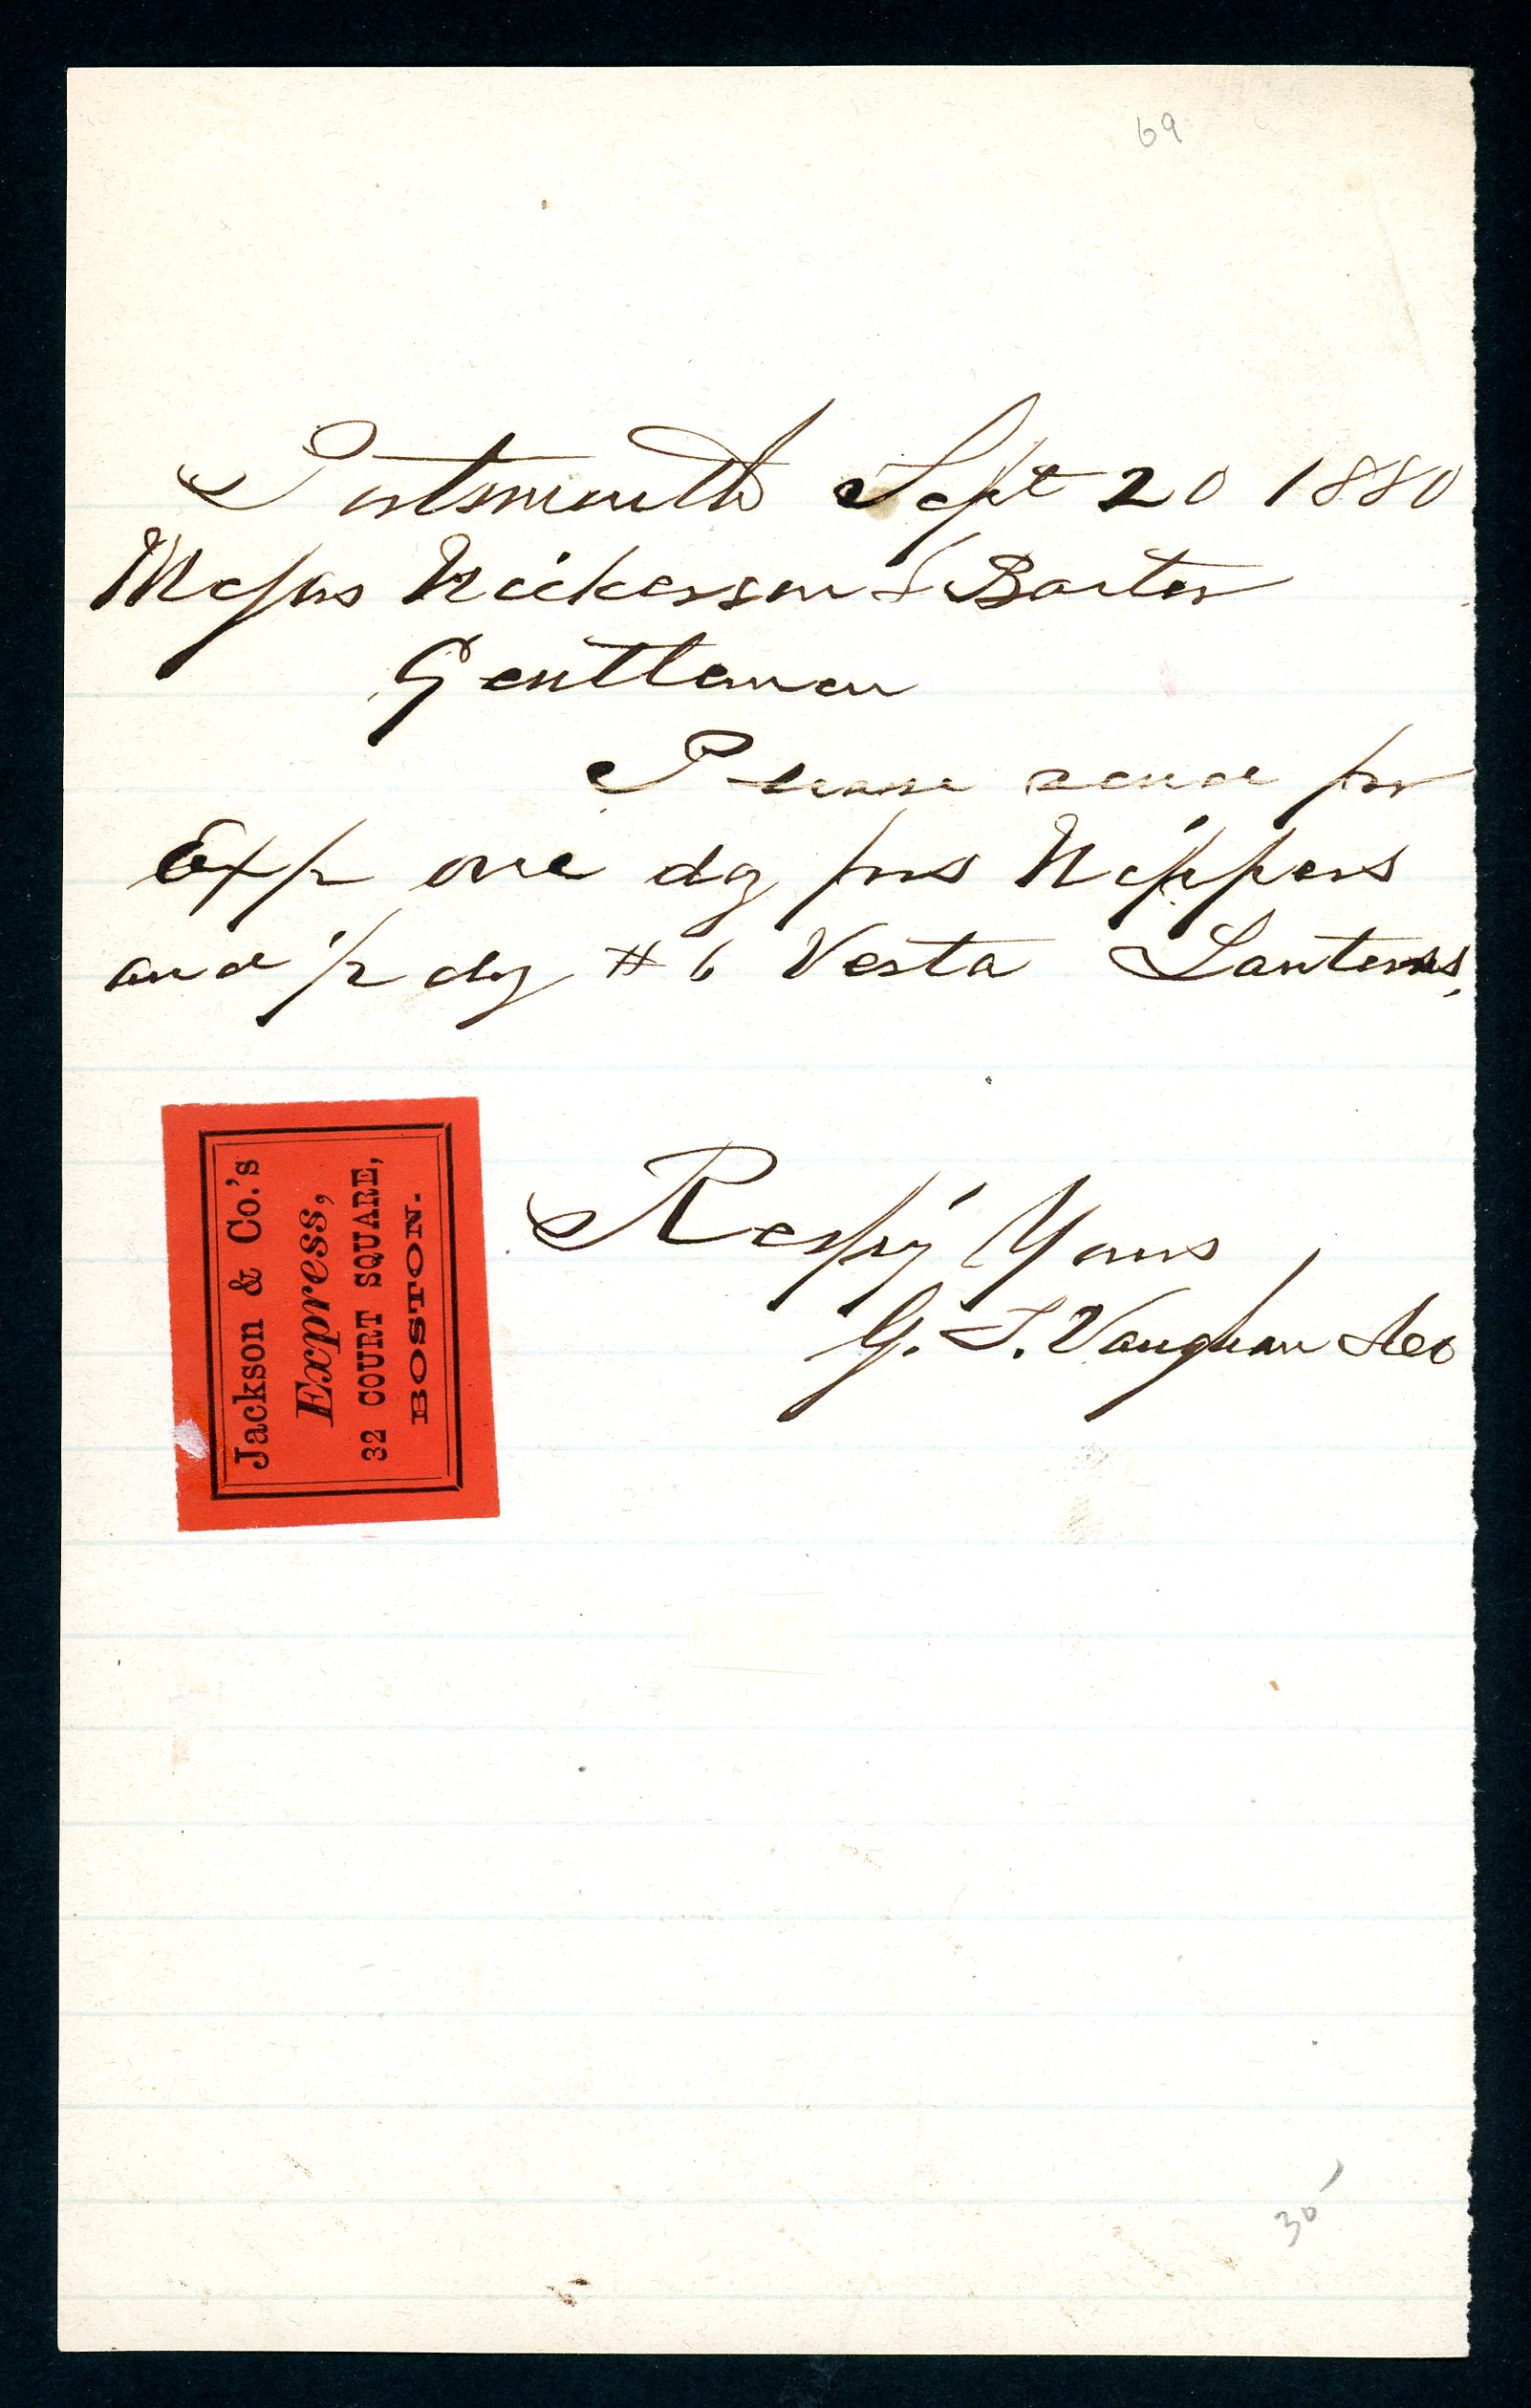 69
Portsmouth Sept 20 1880
Messrs Nickerson & Baxter
Gentlemen
Please send per
Exp one dz prs Nippers
and 1/2 dz # 6 Vesta Lanterns,
Respy Yours
G. T. Vaughan
Jackson & Co.'s
Express,
32 COURT SQUARE,
BOSTON.
30